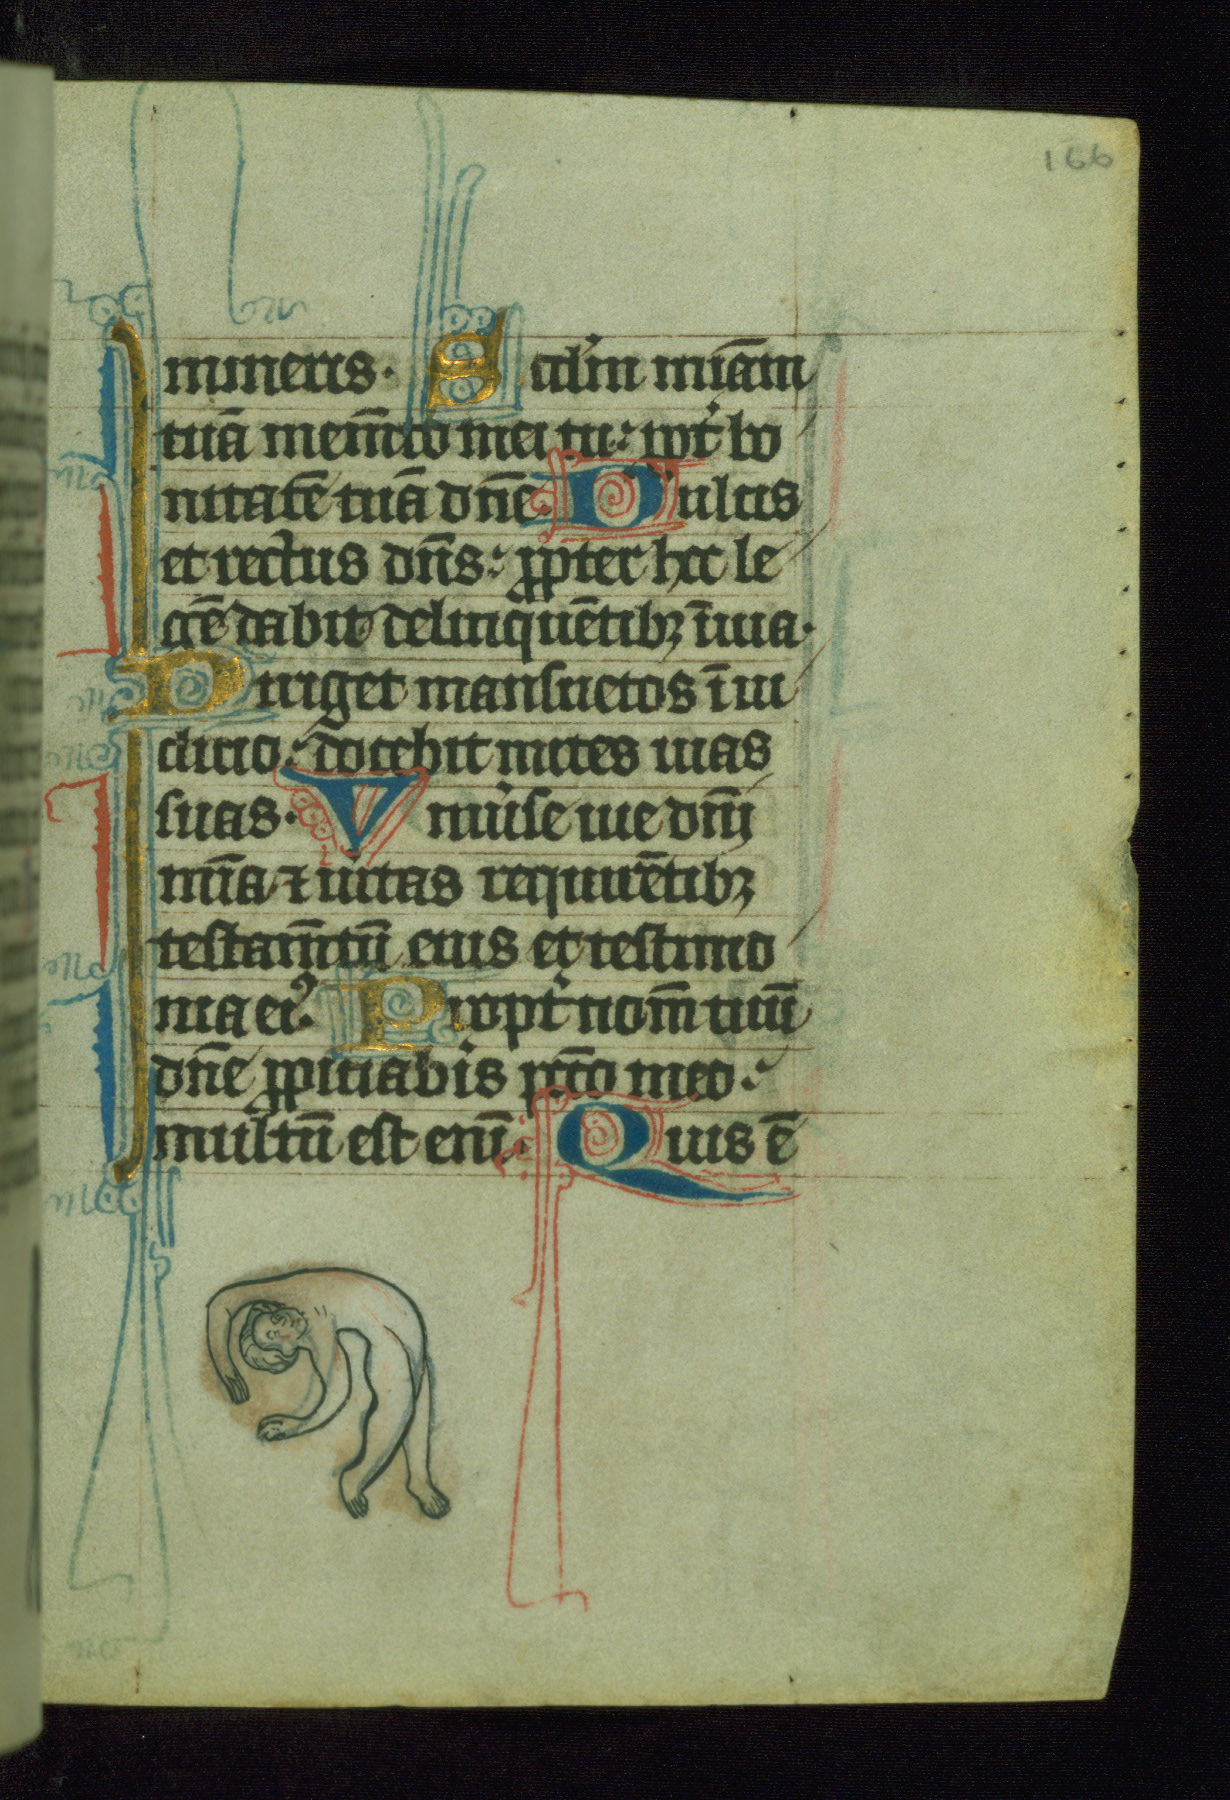 166
mineris. Scd'm mīam
tuā mem̄to mei tu: ꝓpt̉ bo
nitatē tuā dn̄e. Dulcis
et rectus dn̄s: ꝓpter hoc le
gē dabit delinquētibꝫ ī uia.
Diriget mansuetos ī iu
dicio: docebit mites uias
suas. Vniu̾se uie dn̄i
mīa ⁊ ueritas requirētibꝫ
testam̄tū eius et testimo
nia ei᾽. Propt̉ nom̄ tuū
dn̄e ꝓpitiab̾is pc̄to meo:
multū est enī. Quis ē